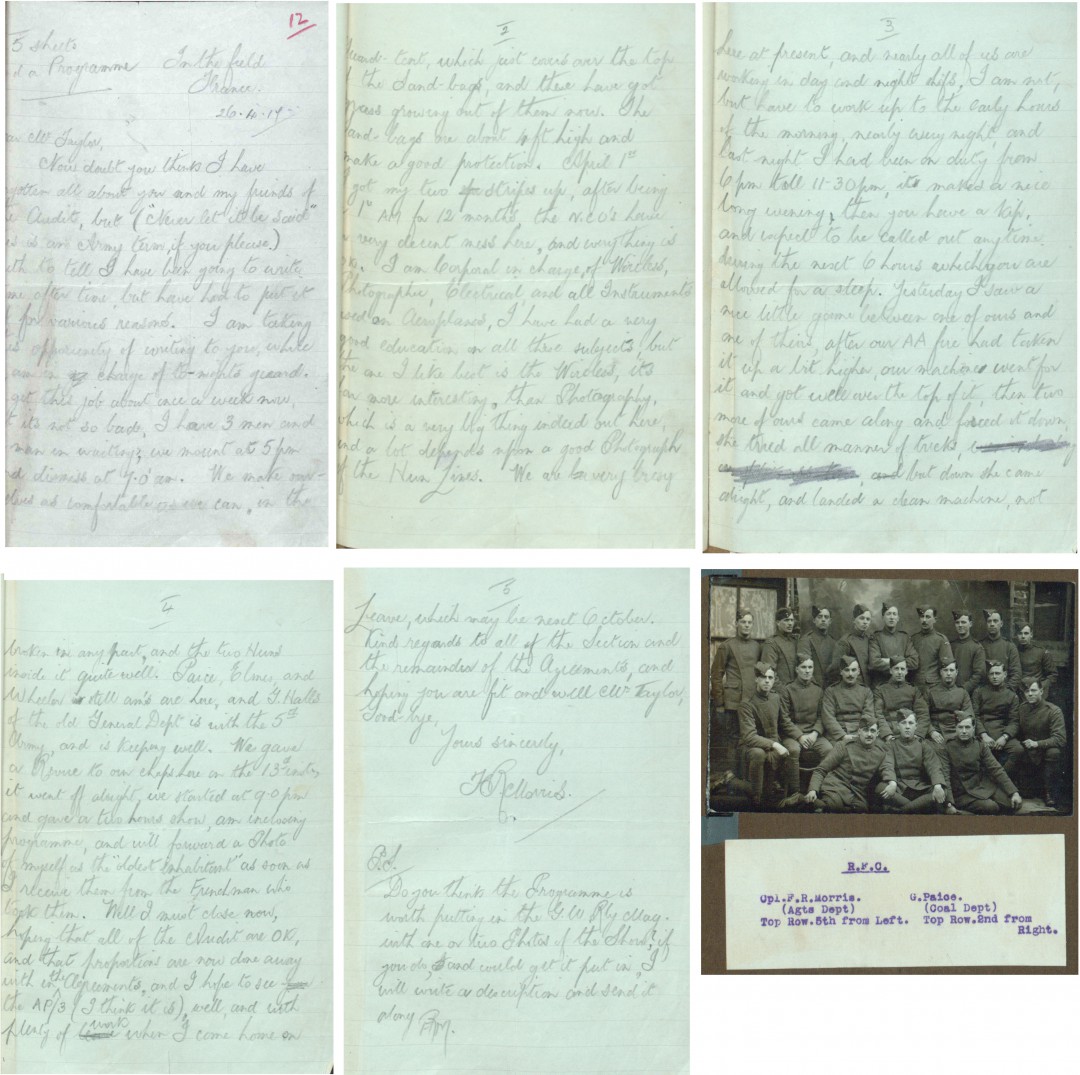 12
5 sheets
a Programme
In the field
France.
26.4.17
Mr Taylor,
Now doubt you think I have
gotten all about you and my friends of
Audit, but ("Never let it be said"
is is an Army term, if you please.)
uth to tell I have been going to write
me after time but have had to put it
f for various reasons. I am taking
is opportunity of writing to you, while
am in charge of to-nights guard.
get this job about once a week now,
t it's not so bad, I have 3 men and
man in waiting, we mount at 5 pm
nd dismiss at 7.0 am. We make our-
elves as comfortable as we can, in the
2
guard-tent, which just covers over the top
f the Sand-bags, and these have got
growing out of them now. The
and-bags are about 4 ft high and
make a good protection. April 1st
I got my two stripes up, after being
1st AM for 12 months, the N.C.O's have
very decent mess here, and everything is
OK. I am Corporal in charge, of Wireless,
Photographic, Electrical, and all Instruments
sed on Aeroplanes, I have had a very
good education in all these subjects, but
the one I like best is the Wireless, its
far more interesting, than Photography,
which is a very big thing indeed out here,
and a lot depends upon a good Photograph
of the Hun Lines. We are very busy
3
here at present, and nearly all of us are
working in day and night shifs, I am not,
but have to work up to the early hours
of the morning, nearly every night, and
last night I had been on duty from
6 pm till 11-30 pm, its makes a nice
long evening, then you have a Nap,
and expect to be called out anytime
during the next 6 hours which you are
allowed for a sleep. Yesterday I saw a
nice little game between one of ours and
one of theirs, after our AA fire had taken
it up a bit higher, our machine went for
it and got well over the top of it, then two
more of ours came along and forced it down,
she tried all manner of tricks,
and but down she came
alright, and landed a clean machine, not
4
broken in any part, and the two Huns
inside it quite well. Paice, Elms, and
Wheeler still am's are here, and G. Halls
of the old General Dept is with the 5th
Army, and is keeping well. We gave
a Revue to our chaps here on the 13th inst,
it went off alright, we started at 9 0 pm
and gave a two hours show, am inclosing
programme, and will forward a Photo
of myself as the "oldest Inhabitent" as soon as
I receive them from the Frenchman who
took them. Well I must close now,
hoping that all of the Audit are OK,
and that proportions are now done away
with in the Agreements, and I hope to see
the AP/3 (I think it is), well, and with
plenty of work when I come home on
5
Leave, which may be next October.
Kind regards to all of the Section and
the remainder of the Agreements, and
hoping you are fit and well Mr Taylor,
Good-bye,
Yours sincerely,
F R Morris.
P.S.
Do you think the Programme is
worth putting in the G.W. Rly Mag.
with one or two Photos of the Show, if
you do, and could get it put in, I
will write a description and send it
along FRM.
R.F.C.
Cpl.F.R.Morris. G.Paice.
(Agts Dept) (Coal Dept)
Top Row.5th from Left. Top Row.2nd from
Right.